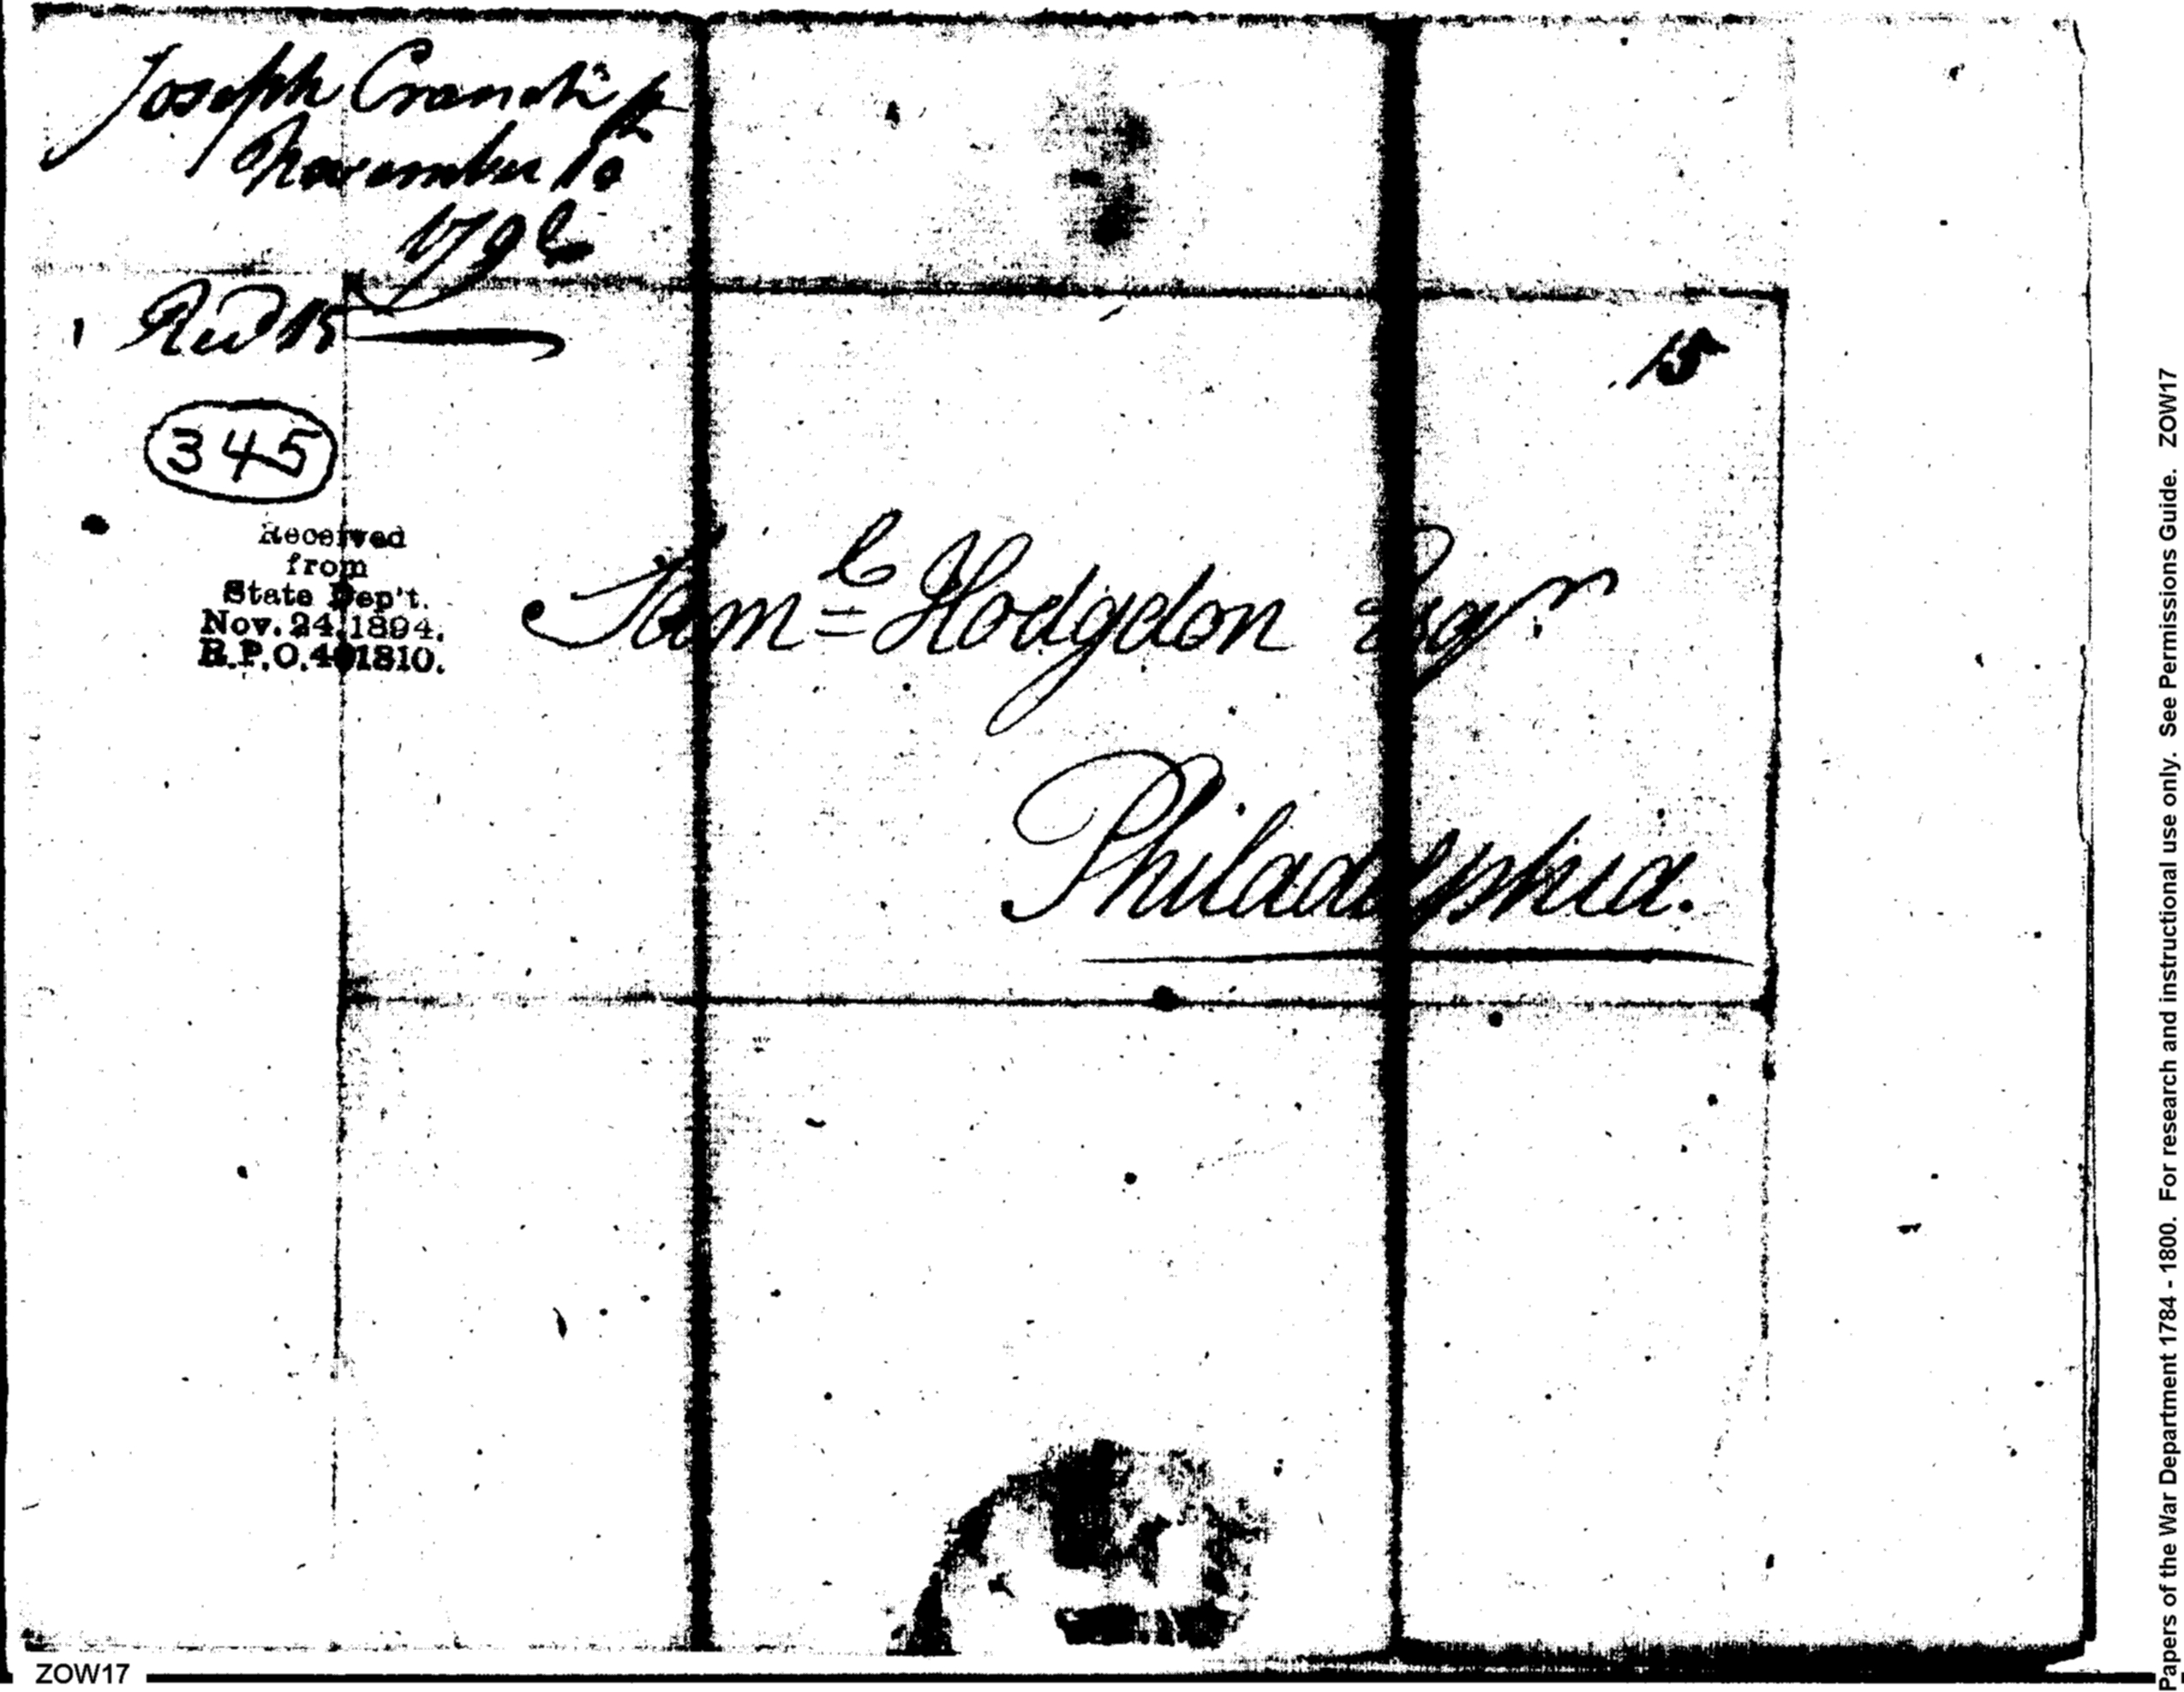 Joseph Cranch's
November 10
1796
Recd 15
15
345
Received
from
State Dep't.
Nov. 24, 1894.
R.P.O. 401810.
Saml Hodgdon Esqr.
Philadelphia.
ZOW17
Papers of the War Department 1784 - 1800. For research and instructional use only. See Permissions Guide. ZOW17